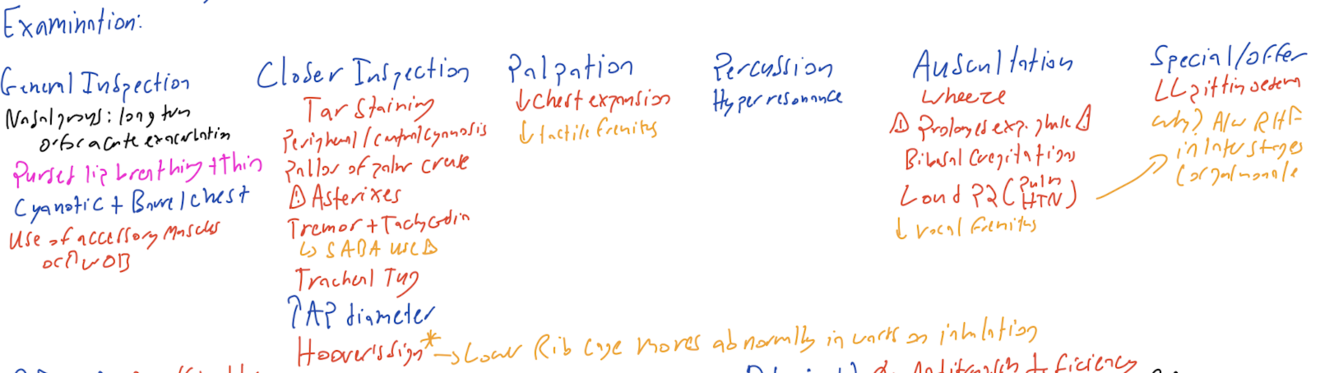 Examination:
General Inspection
Nasal prongs: long term
or for acute exacerbation
Purset lip breathing + thin
Cyanotic + Barrel chest
Use of accessory muscles
or ↑ WOB
Closer Inspection
Tar Staining
Peripheral / central cyanosis
Pallor of palmar crease
Asterixes
Tremor + Tachycardia
↳ SABA use
Tracheal Tug
↑ AP diameter
Hoover's sign* → Lower Rib cage moves abnormally inwards on inhalation
Palpation
↓ Chest expansion
↓ tactile fremitus
Percussion
Hyper resonance
Auscultation
Wheeze
Prolonged exp. phase
Bibasal Crepitations
Loud P2 (Pulm HTN)
↓ vocal fremitus
Special/offer
LL pitting oedema
why? A/w RHF
in later stages
Cor pulmonale
Antitrypsin deficiency